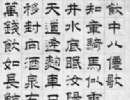 飲中八僊歌
知章騎馬似
井水底眠汝陽
天道逢
移封向酒泉
萬錢飲如長